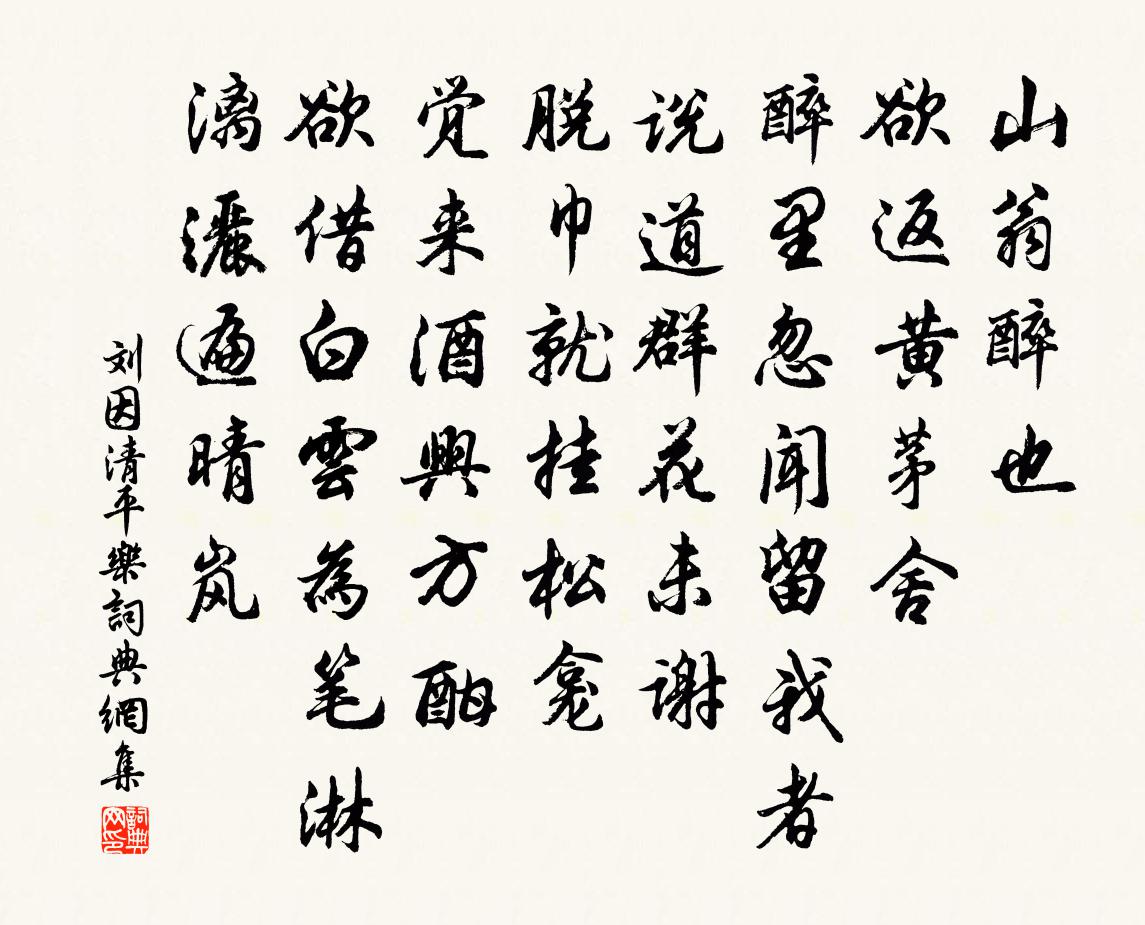 山翁醉也
欲返黄茅舍
醉里忽聞留我者
説道群花未謝
脱巾就挂松龛
觉来酒興方酣
欲借白雲為笔淋
漓灑遍晴岚
刘因清平樂詞典網集
詞典网印